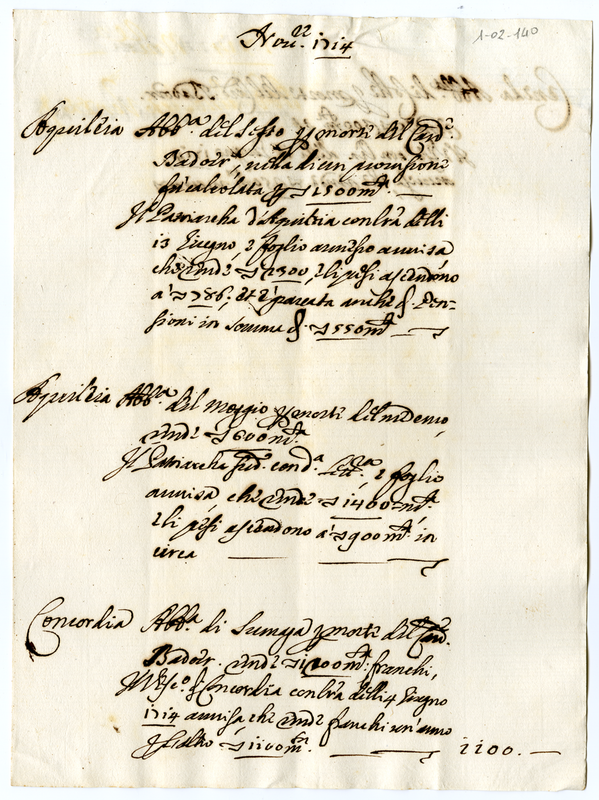 1-02-140
Nov.re 1714
Aquileia Abb.a del Sesto p morte del Card.e
Badoer, nella di cui provisione
fu calcolata p ▽ 1500 m.ta
Il Patriarcha d'Aquileia con l'ra delli
13 Giugno, e foglio annesso avvisa
che rende ▽ 2300, e li pesi ascendono
à ▽ 786. et è gravata anche di Pen-
sioni in somma di ▽ 550 m.ta
Aquileia Abb.a del Moggio p morte del med.emo,
rende ▽ 600 m.ta
Il Patriarcha sud.o con d.a Lett.ra, e foglio
avvisa, che rende ▽ 1400 m.ta,
e li pesi ascendono à ▽ 900 m.ta in
circa
Concordia Abb.a di Sumaga p morte del Card.
Badoer rende ▽ 1200 m.ta franchi,
Il Vesc.o di Concordia con l'ra delli 4 Giugno
1714 avvisa che rende franchi un anno
p l'altro ▽ 1100 m.ta 1100.